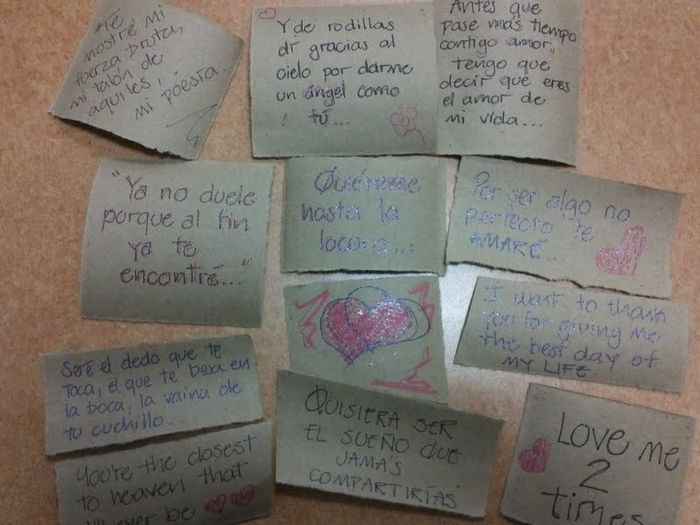 "Te
mostré mi
fuerza bruta,
mi talón de
aquiles,
mi poesía.
Y de rodillas
dr gracias al
cielo por darme
un ángel como
tú...
Antes que
pase más tiempo
contigo amor,
tengo que
decir que eres
el amor de
mi vida...
"Ya no duele
porque al fin
ya te
encontré..."
Quiéreme
hasta la
locura...
Por ser algo no
perfecto te
AMARÉ...
I want to thank
you for giving me
the best day of
MY LIFE.
Seré el dedo que te
toca, el que te besa en
la boca, la vaina de
tu cuchillo...
You're the closest
to heaven that
ever be
QUISIERA SER
EL SUEÑO QUE
JAMAS
COMPARTIRÍAS
Love me
2
times